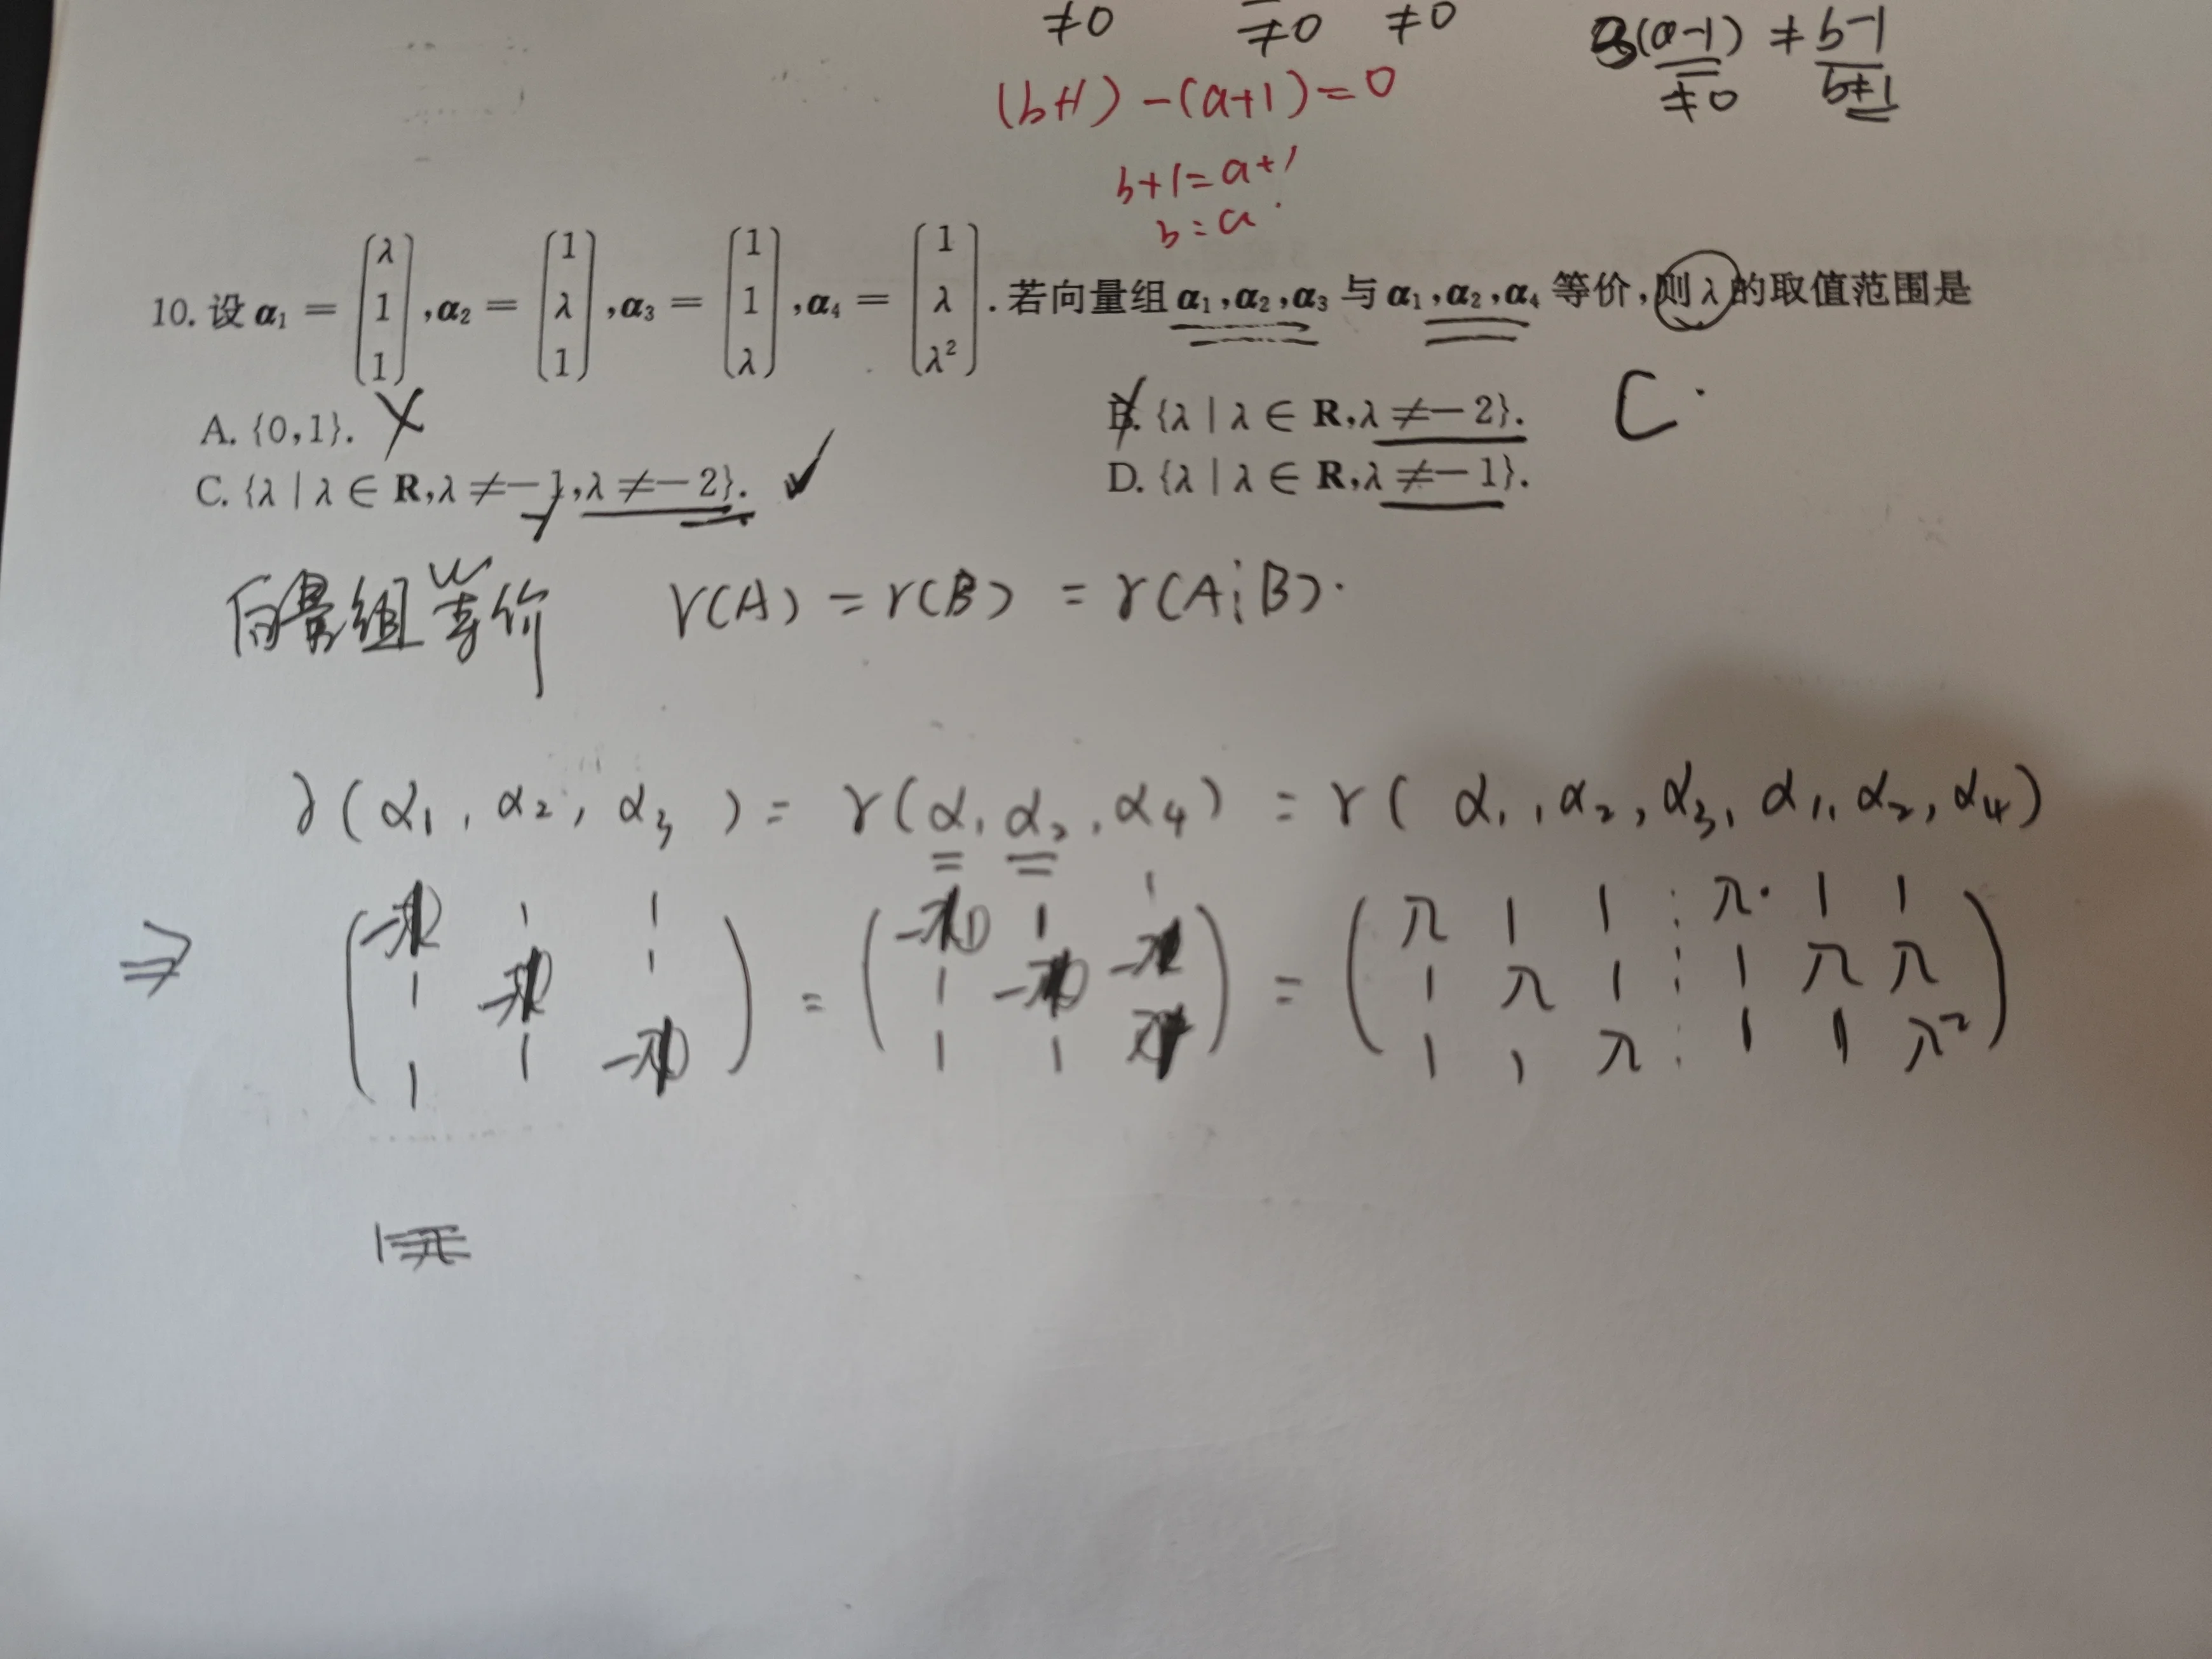 ≠0 ≠0 ≠0
(a-1) ≠ b-1
≠0 b≠1
(b+1) -(a+1)=0
b+1=a+1
b=a
10. 设 α₁ = (λ 1 1), α₂ = (1 λ 1), α₃ = (1 1 λ), α₄ = (1 λ λ²). 若向量组 α₁,α₂,α₃ 与 α₁,α₂,α₄ 等价,则 λ 的取值范围是
A. {0,1}. ✗ B. {λ | λ ∈ R,λ ≠ −2}. C.
C. {λ | λ ∈ R,λ ≠ −1,λ ≠ −2}. ✓ D. {λ | λ ∈ R,λ ≠ −1}.
向量组等价 r(A) = r(B) = r(A¦B).
r(α₁, α₂, α₃) = r(α₁, α₂, α₄) = r(α₁, α₂, α₃, α₁, α₂, α₄)
1 1 1 λ 1 1 ⋮ λ 1 1
⇒ ( 1 1 ) = ( 1 ) = ( 1 λ 1 ⋮ 1 λ λ )
1 1 1 1 1 1 λ ⋮ 1 1 λ²